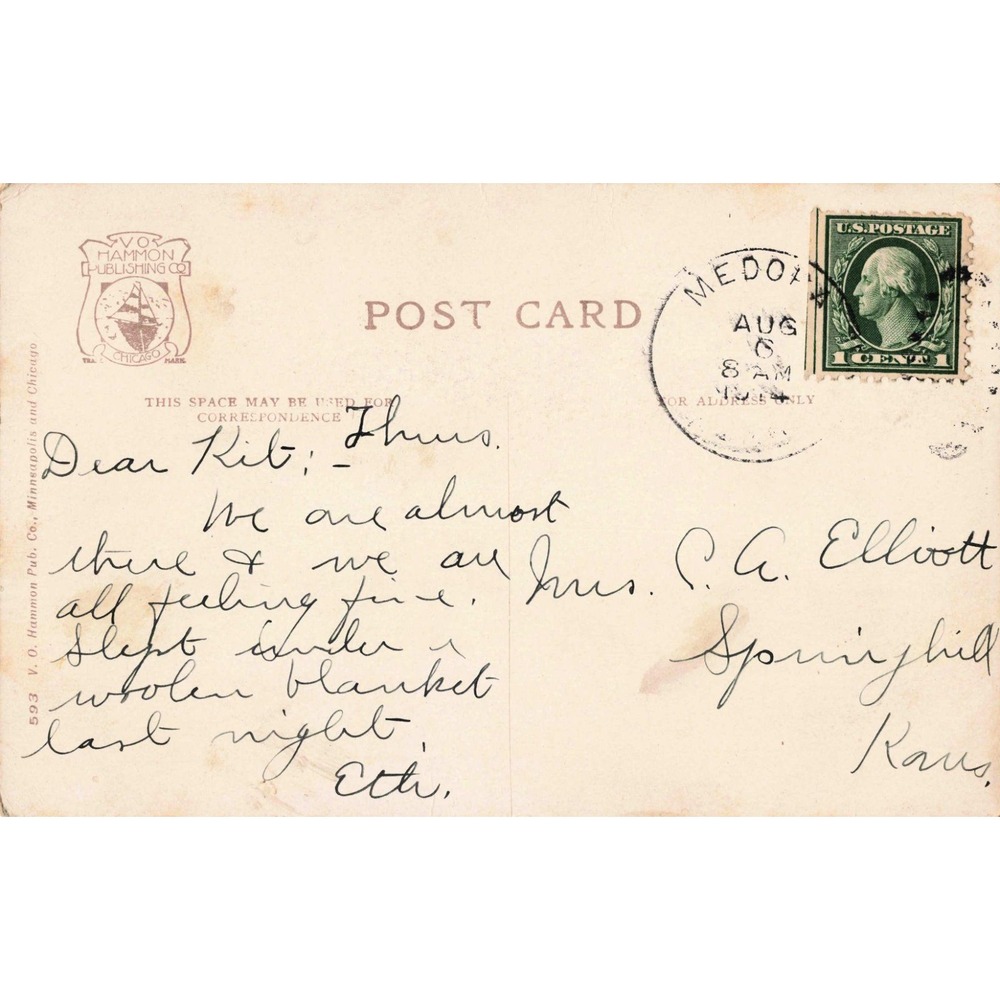 V O
HAMMON
PUBLISHING CO
CHICAGO
TRADE MARK
POST CARD
THIS SPACE MAY BE USED FOR
CORRESPONDENCE
FOR ADDRESS ONLY
593 V. O. Hammon Pub. Co., Minneapolis and Chicago
U.S. POSTAGE
1 CENT 1
MEDORA
AUG
6
8 AM
1914
Thurs.
Dear Kit; -
We are almost
there & we are
all feeling fine.
Slept under a
woolen blanket
last night.
Eth.
Mrs. C. A. Elliott
Springhill
Kans.